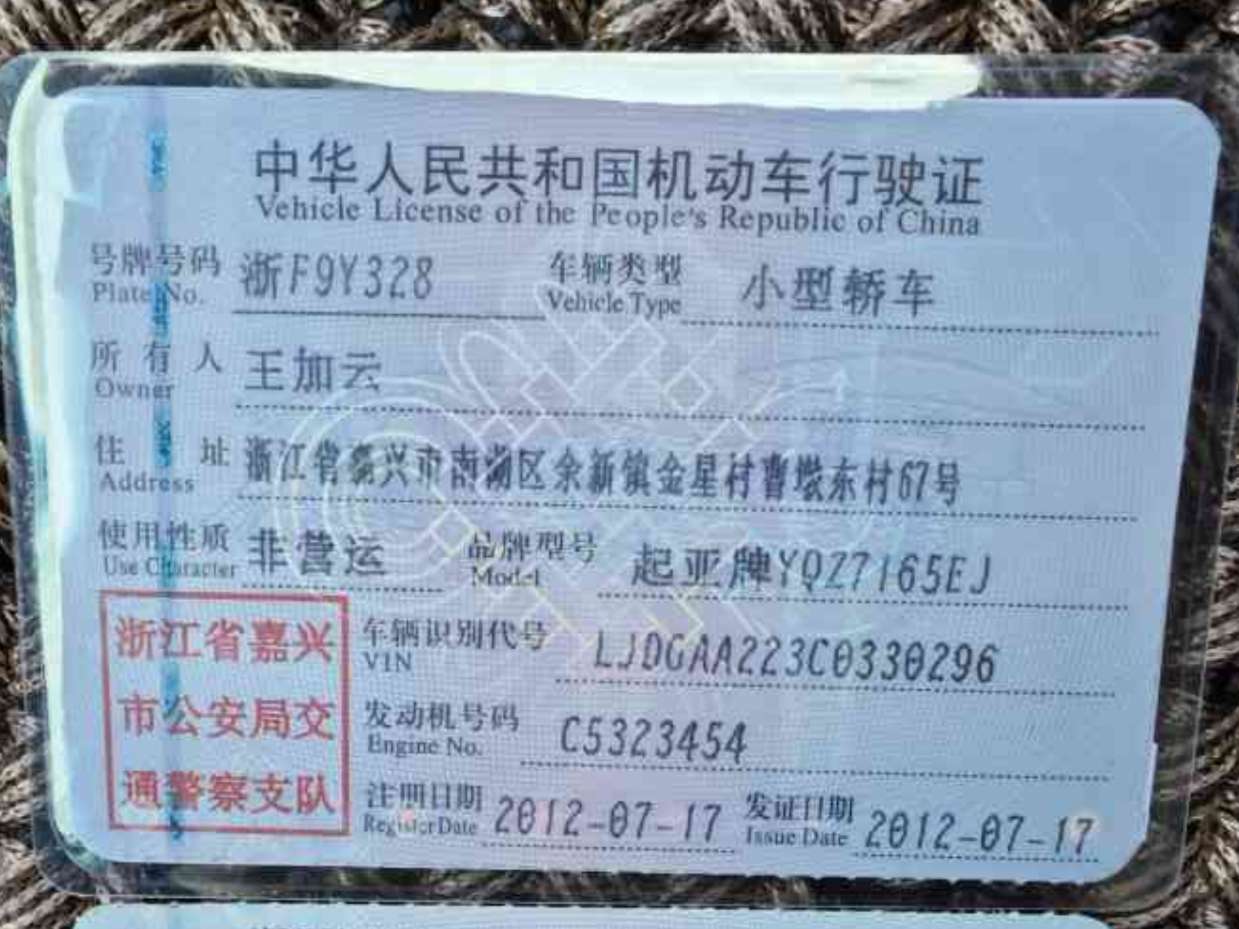 中华人民共和国机动车行驶证
Vehicle License of the People's Republic of China
号牌号码 浙F9Y328 车辆类型 小型轿车
Plate No. Vehicle Type
所有人 王加云
Owner
住址 浙江省嘉兴市南湖区余新镇金星村曹墩东村67号
Address
使用性质 非营运 品牌型号 起亚牌YQZ7165EJ
Use Character Model
浙江省嘉兴 车辆识别代号 LJDGAA223C0330296
VIN
市公安局交 发动机号码 C5323454
Engine No.
通警察支队 注册日期 2012-07-17 发证日期 2012-07-17
Register Date Issue Date